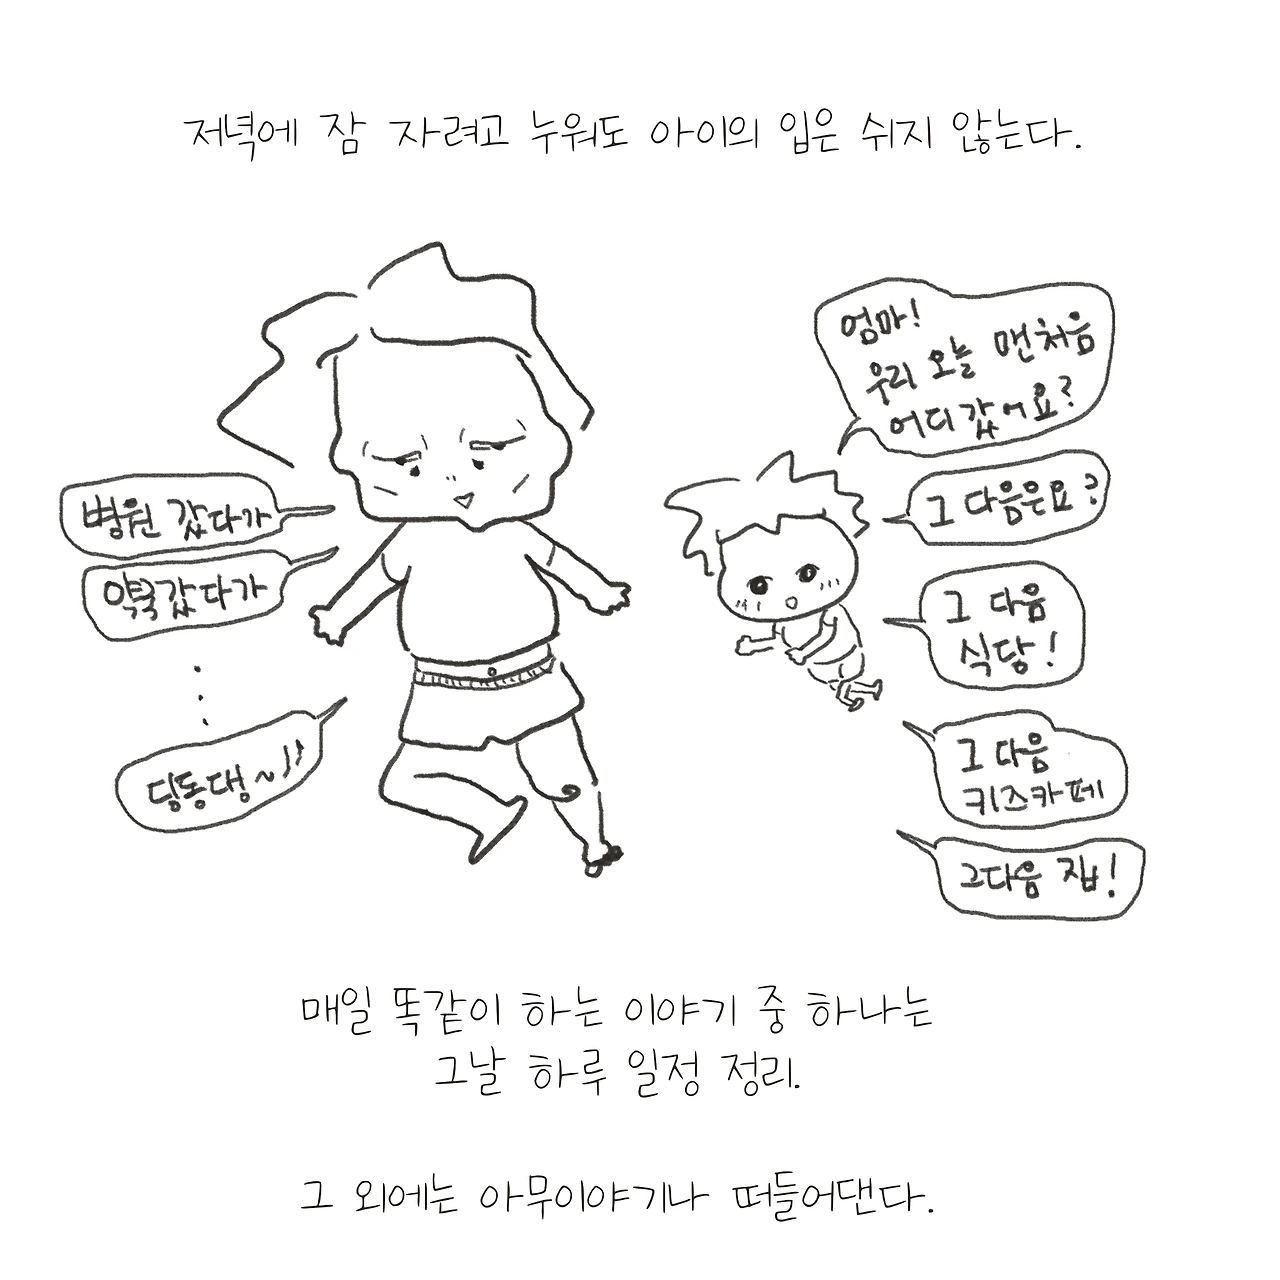 저녁에 잠 자려고 누워도 아이의 입은 쉬지 않는다.
엄마!
우리 오늘 맨처음
어디갔어요?
병원 갔다가
그 다음은요?
약국갔다가
그 다음
식당!
그 다음
키즈카페
딩동댕~♪♪
그다음 집!
매일 똑같이 하는 이야기 중 하나는
그날 하루 일정 정리.
그 외에는 아무이야기나 떠들어댄다.